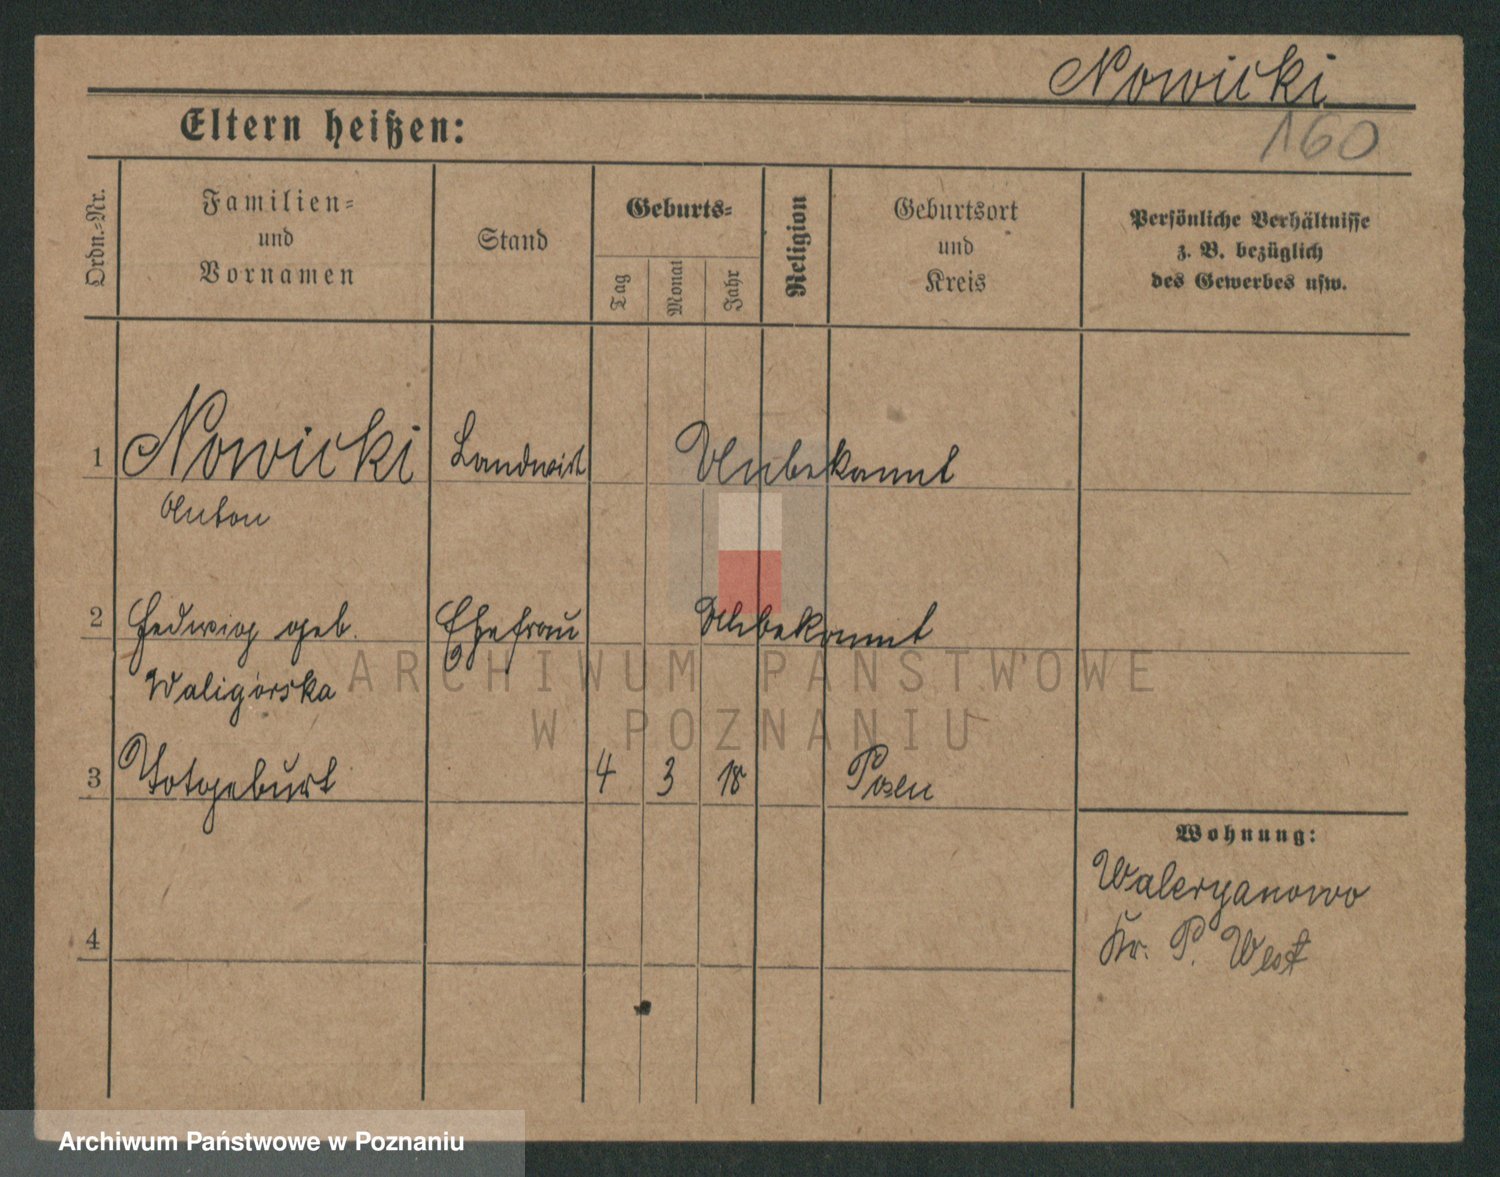 Nowicki
160
Eltern heißen:
Ordn.-Nr.
Familien-
und
Vornamen
Stand
Geburts-
Tag
Monat
Jahr
Religion
Geburtsort
und
Kreis
Persönliche Verhältnisse
z. B. bezüglich
des Gewerbes usw.
1 Nowicki Landwirt Unbekannt
Anton
2 Hedwig geb. Ehefrau Unbekannt
Waligórska
ARCHIWUM PAŃSTWOWE
W POZNANIU
3 Totgeburt 4 3 18 Posen
Wohnung:
Waleryanowo
Kr. P. West
4
Archiwum Państwowe w Poznaniu